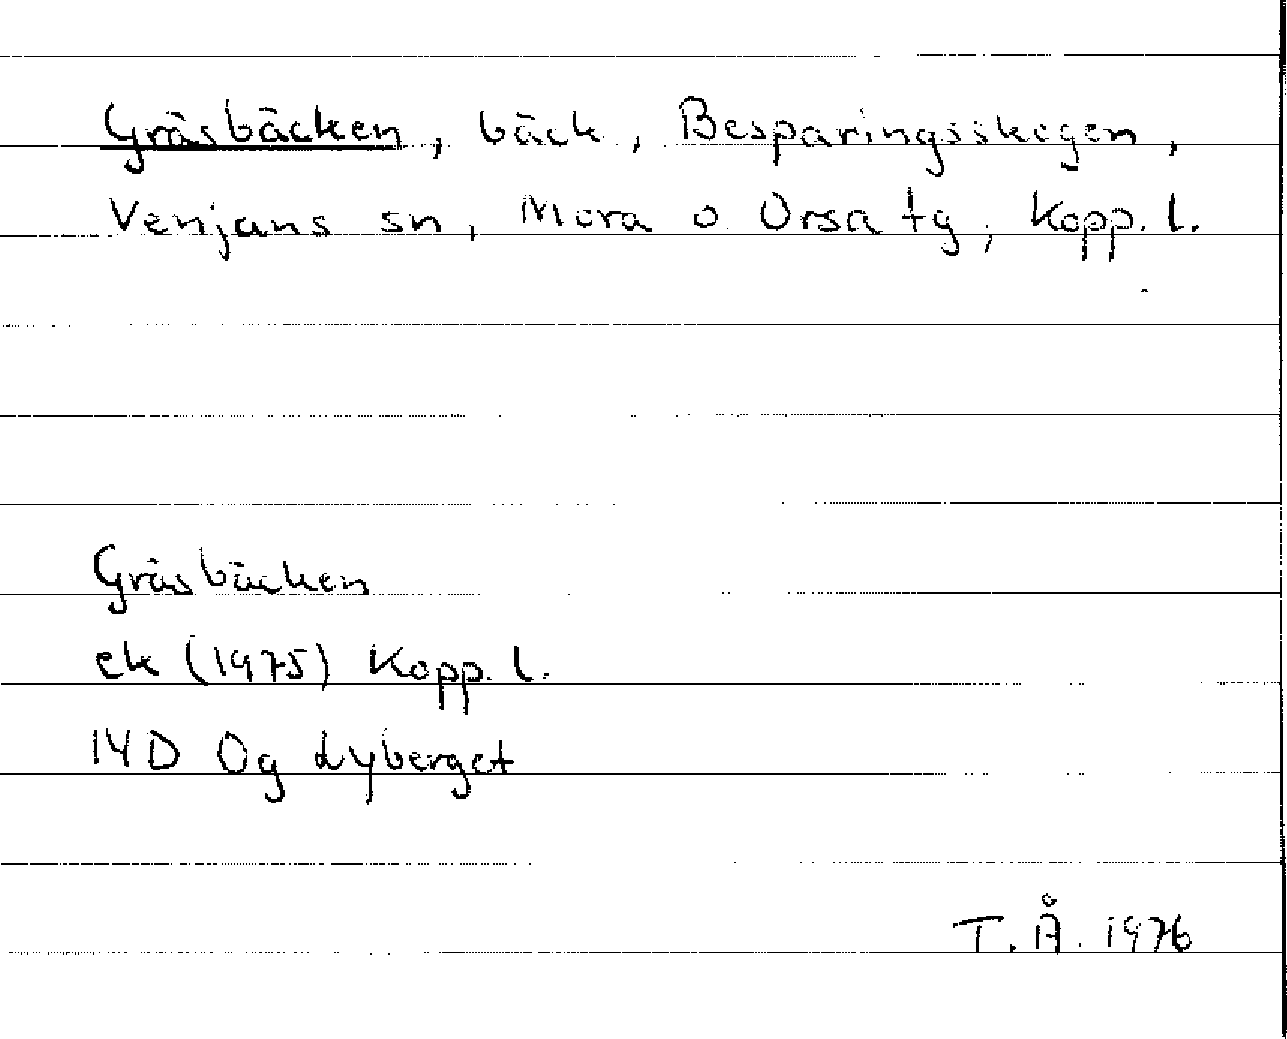 Gräsbäcken, bäck, Besparingsskogen,
Venjans sn, Mora o Orsa tg, Kopp. l.
Gräsbäcken
ek (1975) Kopp. l.
14D 0g Lyberget
T.Å. 1976